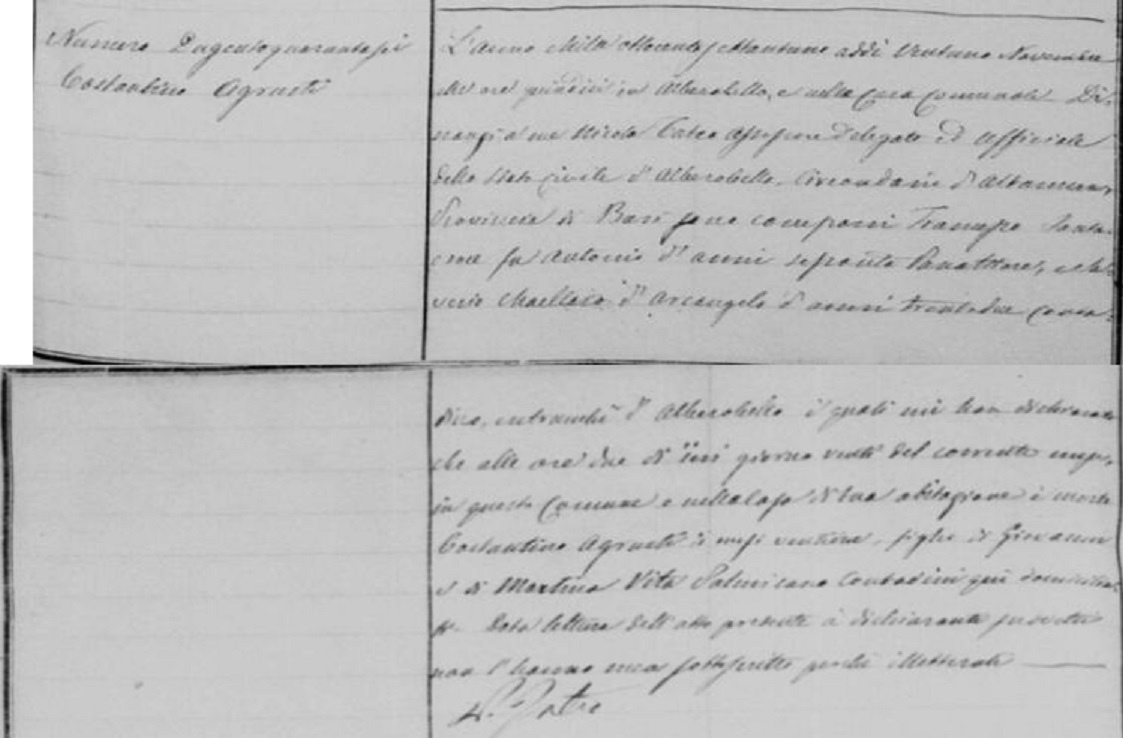 Numero Dugentoquarantasei
Costantino Agrusti
L'anno Mille ottocento settantuno addì Ventuno Novembre
alle ore quindici in Alberobello, e nella Casa Comunale Di-
nanzi a me Nicola Tateo Assessore Delegato ed Ufficiale
dello Stato Civile d'Alberobello, Circondario d'Altamura,
Provincia di Bari sono comparsi
fu Antonio d'anni sessanta
d'Arcangelo d'anni trentadue Conta-
dino, entrambi d'Alberobello i quali mi han dichiarato
che alle ore due di ieri giorno venti del corrente mese,
in questo Comune e nella Casa di sua abitazione è morto
Costantino Agrusti di mesi figlio di Giovanni
e di Martina Vita Palmisano Contadini qui domicilia-
ti. Data lettura dell'atto presente a' dichiaranti suddetti
non l'hanno meco sottoscritto perchè illetterati
N. Tateo